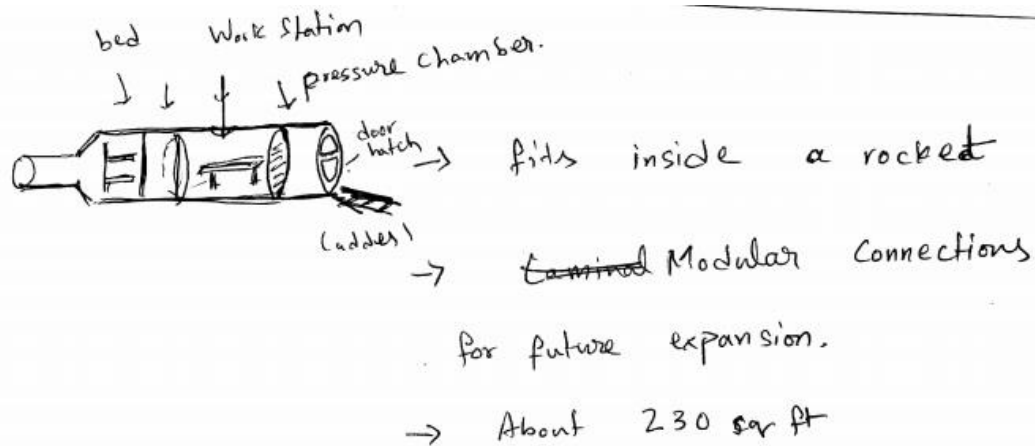 bed
Work Station
pressure chamber.
door
hatch
(adder)
→ fits inside a rocket
→ Laminal Modular Connections
for future expansion.
→ About 230 sq ft